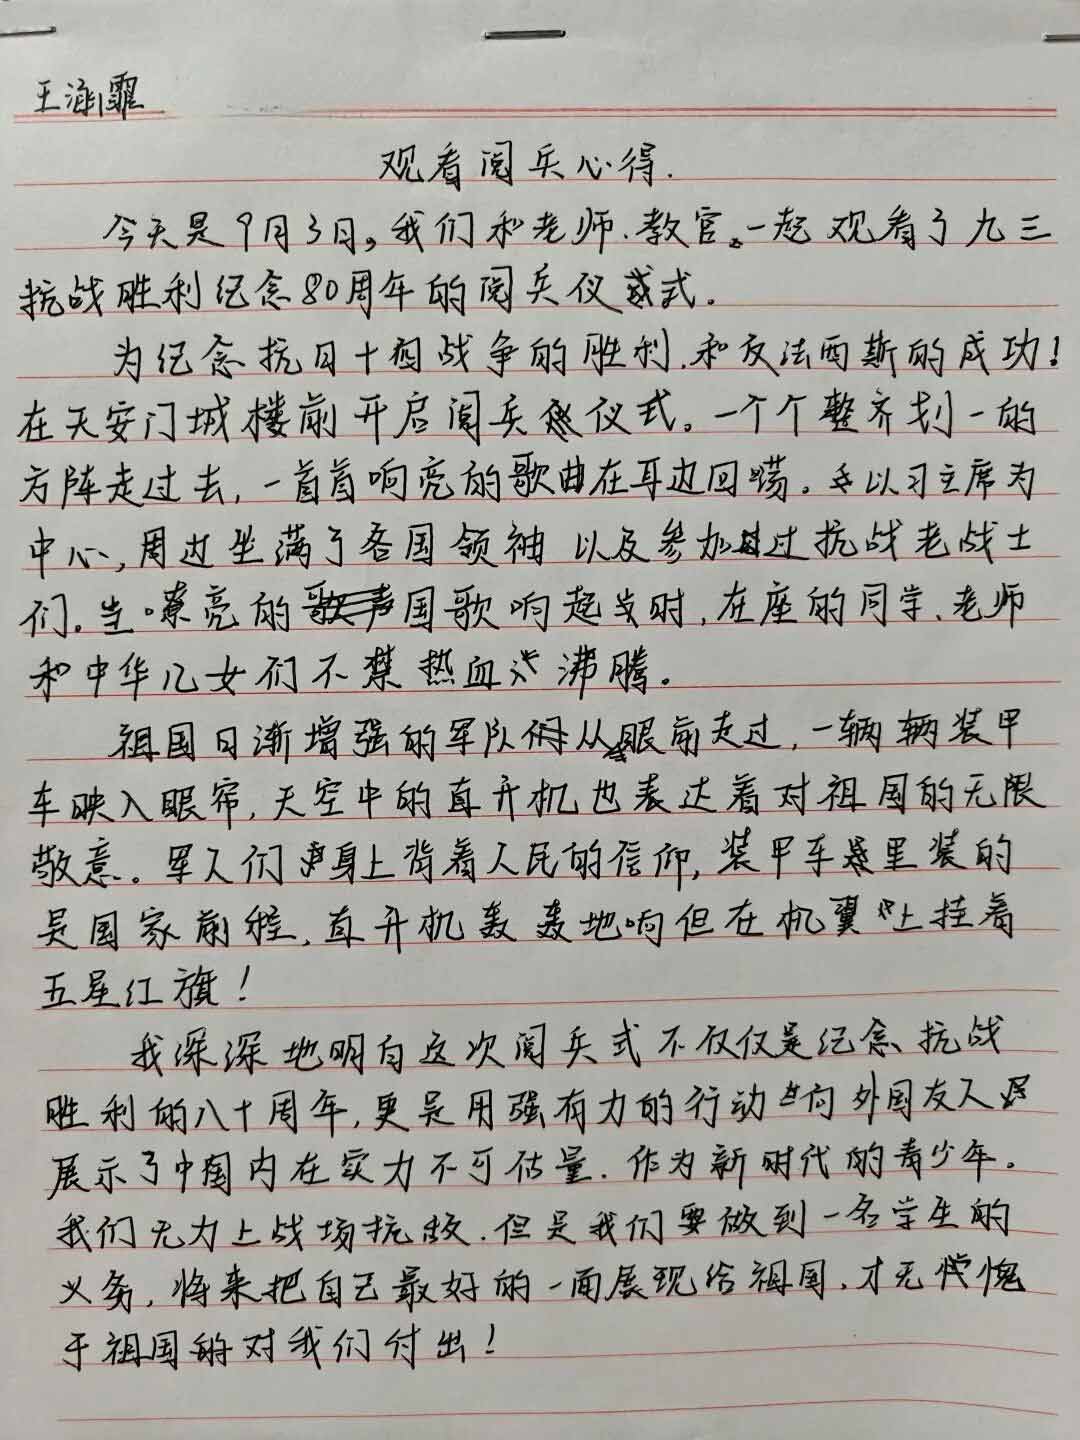 王涵霏
观看阅兵心得.
今天是9月3日,我们和老师、教官、一起观看了九三
抗战胜利纪念80周年的阅兵仪式。
为纪念抗日十四战争的胜利、和反法西斯的成功!
在天安门城楼前开启阅兵仪式。一个个整齐划一的
方阵走过去,一首首响亮的歌曲在耳边回荡。以习主席为
中心,周边坐满了各国领袖以及参加过抗战老战士
们。当嘹亮的国歌响起当时,在座的同学、老师
和中华儿女们不禁热血沸腾。
祖国日渐增强的军队从眼前走过,一辆辆装甲
车映入眼帘,天空中的直升机也表达着对祖国的无限
敬意。军人们身上背着人民的信仰,装甲车里装的
是国家前程,直升机轰轰地响但在机翼上挂着
五星红旗!
我深深地明白这次阅兵式不仅仅是纪念抗战
胜利的八十周年,更是用强有力的行动向外国友人
展示了中国内在实力不可估量.作为新时代的青少年。
我们无力上战场抗敌.但是我们要做到一名学生的
义务,将来把自己最好的一面展现给祖国,才无愧
于祖国的对我们付出!